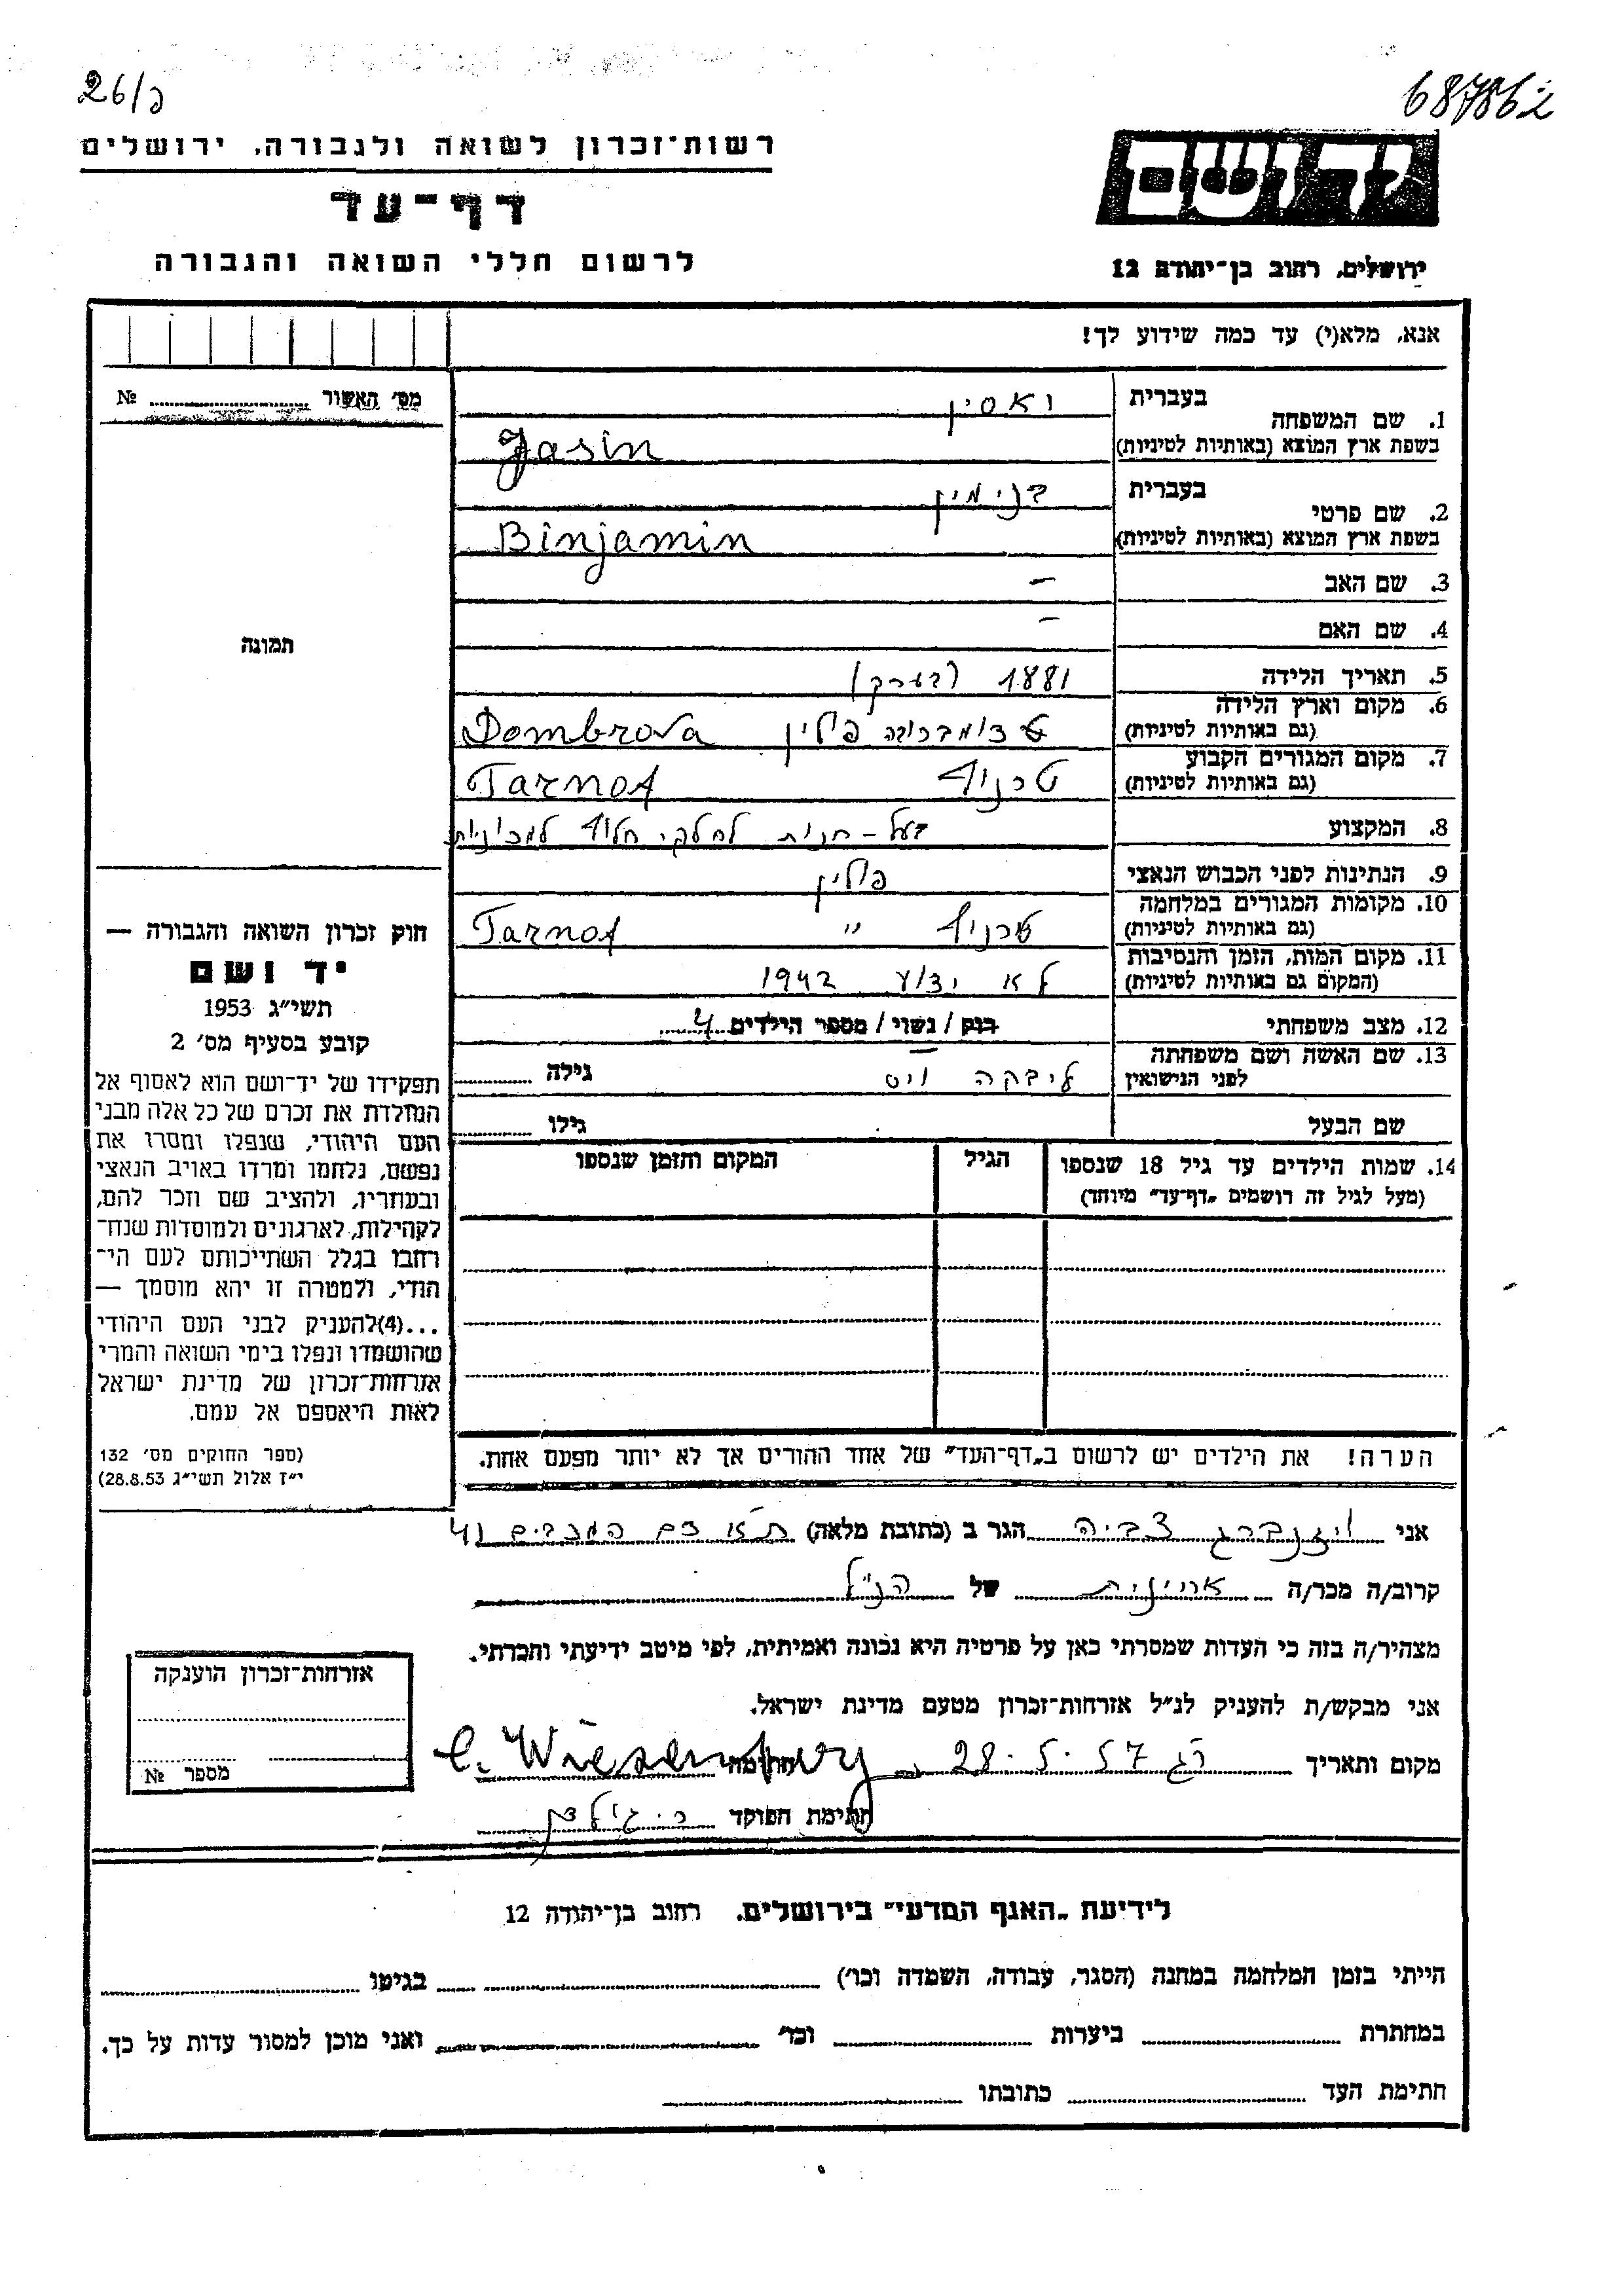 26/כ
687862
רשות־זכרון לשואה ולגבורה, ירושלים
דף־עד
לרשום חללי השואה והגבורה
יד ושם
ירושלים, רחוב בן־יהודה 12
אנא, מלא(י) עד כמה שידוע לך!
מס׳ האשור № 
תמונה
1. שם המשפחה
בעברית
יאסין
בשפת ארץ המוצא (באותיות לטיניות)
Jasin
2. שם פרטי
בעברית
בנימין
בשפת ארץ המוצא (באותיות לטיניות)
Binjamin
3. שם האב –
4. שם האם –
5. תאריך הלידה 1881 (בערך)
6. מקום וארץ הלידה
(גם באותיות לטיניות) דומברובה פולין Dombrova
7. מקום המגורים הקבוע
(גם באותיות לטיניות) טרנוף Tarnof
8. המקצוע בעל - חנות לחלקי חלוף למכוניות
9. הנתינות לפני הכבוש הנאצי פולין
10. מקומות המגורים במלחמה
(גם באותיות לטיניות) טרנוף " Tarnof
11. מקום המות, הזמן והנסיבות
(המקום גם באותיות לטיניות) לא ידוע 1942
12. מצב משפחתי רוק / נשוי / מספר הילדים 4
13. שם האשה ושם משפחתה
לפני הנישואין ליבקה וייס גילה
שם הבעל גילו
14. שמות הילדים עד גיל 18 שנספו
(מעל לגיל זה רושמים „דף־עד״ מיוחד)
הגיל
המקום והזמן שנספו
הערה! את הילדים יש לרשום ב„דף־העד״ של אחד ההורים אך לא יותר מפעם אחת.
חוק זכרון השואה והגבורה —
יד ושם
תשי״ג 1953
קובע בסעיף מס׳ 2
תפקידו של יד־ושם הוא לאסוף אל
המולדת את זכרם של כל אלה מבני
העם היהודי, שנפלו ומסרו את
נפשם, נלחמו ומרדו באויב הנאצי
ובעוזריו, ולהציב שם וזכר להם,
לקהילות, לארגונים ולמוסדות שנח־
רחבו בגלל השתייכותם לעם הי־
הודי, ולמטרה זו יהא מוסמך —
...(4)להעניק לבני העם היהודי
שהושמדו ונפלו בימי השואה והמרי
אזרחות־זכרון של מדינת ישראל
לאות היאספם אל עמם.
(ספר החוקים מס׳ 132
י״ז אלול תשי״ג 28.8.53)
אני ויזנברג צביה הגר ב (כתובת מלאה) ת״א
קרוב/ה מכר/ה של הנ״ל
מצהיר/ה בזה כי העדות שמסרתי כאן על פרטיה היא נכונה ואמיתית, לפי מיטב ידיעתי והכרתי.
אני מבקש/ת להעניק לנ״ל אזרחות־זכרון מטעם מדינת ישראל.
מקום ותאריך רג 28.5.57 חתימה C. Wiesenberg
חתימת הפוקד
אזרחות־זכרון הוענקה
מספר №
לידיעת „האגף המדעי״ בירושלים, רחוב בן־יהודה 12
הייתי בזמן המלחמה במחנה (הסגר, עבודה, השמדה וכו׳) בגיטו
במחתרת ביערות וכו׳ ואני מוכן למסור עדות על כך.
חתימת העד כתובתו